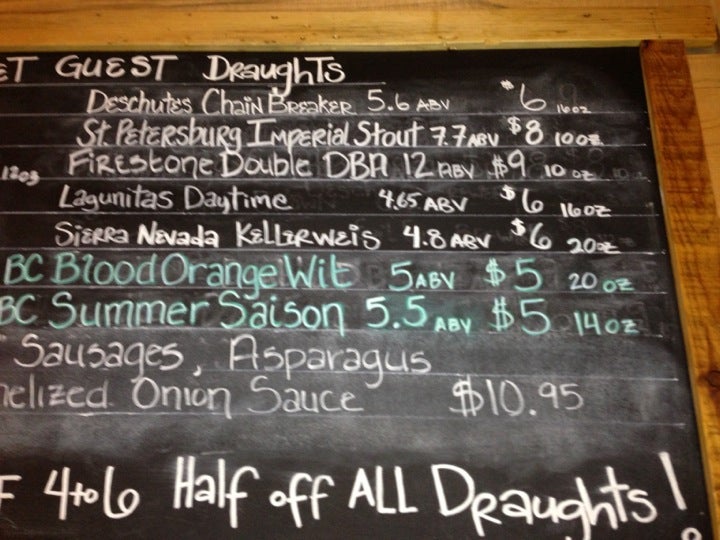 ET GUEST Draughts
Deschutes Chain Breaker 5.6 ABV $6 16oz
St. Petersburg Imperial Stout 7.7 ABV $8 10oz
12oz Firestone Double DBA 12 ABV $9 10 oz
Lagunitas Daytime 4.65 ABV $6 16oz
Sierra Nevada Kellerweis 4.8 ABV $6 20oz
BC Blood Orange Wit 5 ABV $5 20 oz
BC Summer Saison 5.5 ABV $5 14oz
Sausages, Asparagus
nelized Onion Sauce $10.95
F 4 to 6 Half off ALL Draughts!